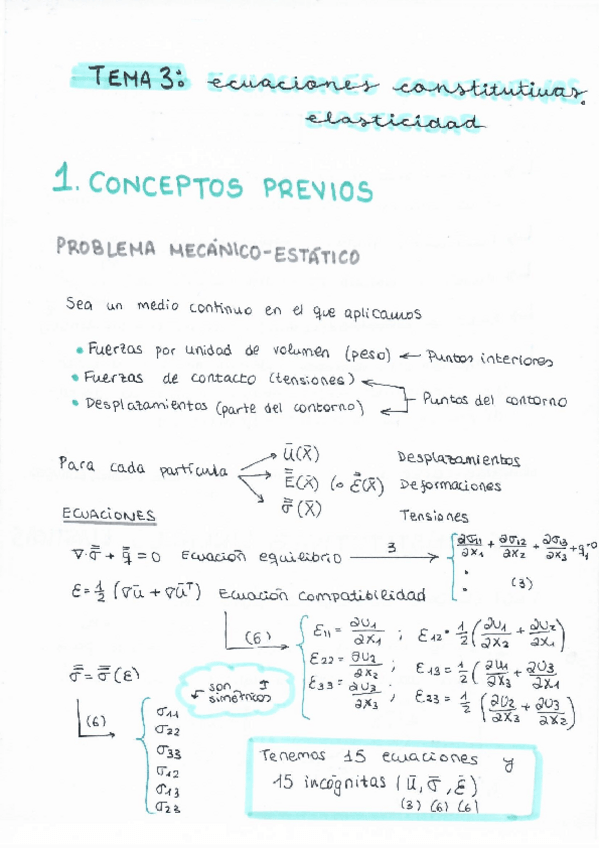 TEMA 3: ecuaciones constitutivas.
elasticidad
1. CONCEPTOS PREVIOS
PROBLEMA MECÁNICO-ESTÁTICO
Sea un medio continuo en el que aplicamos
• Fuerzas por unidad de volumen (peso) ← Puntos interiores
• Fuerzas de contacto (tensiones)
• Desplazamientos (parte del contorno)
Puntos del contorno
Para cada partícula
Ū(X̄) Desplazamientos
E̿(X̄) (o ε̿(X̄)) Deformaciones
σ̿(X̄) Tensiones
ECUACIONES
∇·σ̿ + q̄ = 0 Ecuación equilibrio 3 → ∂σ11/∂x1 + ∂σ12/∂x2 + ∂σ13/∂x3 + q1=0
(3)
ε = 1/2 (∇ū + ∇ūᵀ) Ecuación compatibilidad
(6)
ε11 = ∂U1/∂x1 ; ε12 = 1/2 (∂U1/∂x2 + ∂U2/∂x1)
ε22 = ∂U2/∂x2 ; ε13 = 1/2 (∂U1/∂x3 + ∂U3/∂x1)
ε33 = ∂U3/∂x3 ; ε23 = 1/2 (∂U2/∂x3 + ∂U3/∂x2)
σ̿ = σ̿(ε)
son simétricos
(6)
σ11
σ22
σ33
σ12
σ13
σ23
Tenemos 15 ecuaciones y
15 incógnitas (ū, σ̿, ε̿)
(3) (6) (6)